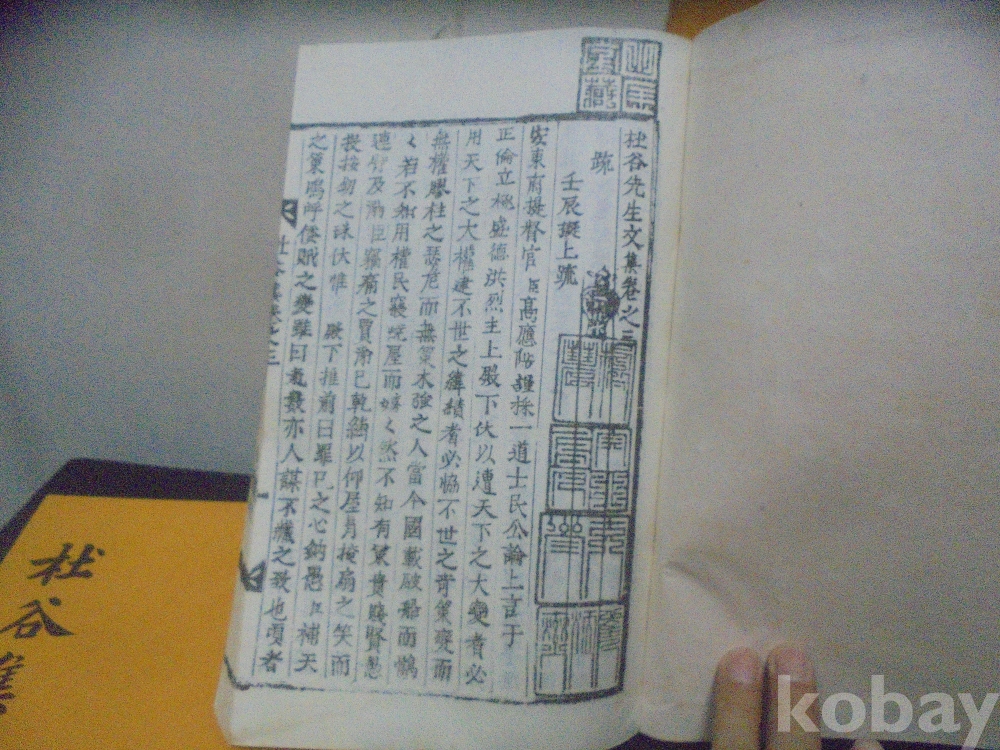 杜谷先生文集卷之三
疏
壬辰擬上疏
安東府提督官臣高應陟謹採一道士民公論上言于
正倫立極盛德洪烈主上殿下伏以遭天下之大變者必
用天下之大權建不世之績者必恊不世之策變而
無權膠柱之瑟危而無策木強之人當今國載破船而
々若不知用權民屋而嬉々然不知有策貴賤賢愚
及臣之賈已乾以仰屋月掩扇之笑而
投按劒之珠伏惟 殿下推前日罪己之心納愚臣補天
之策嗚呼倭賊之變雖曰氣數亦人謀不臧之致也頃者
杜谷集卷之三
杜谷集
kobay